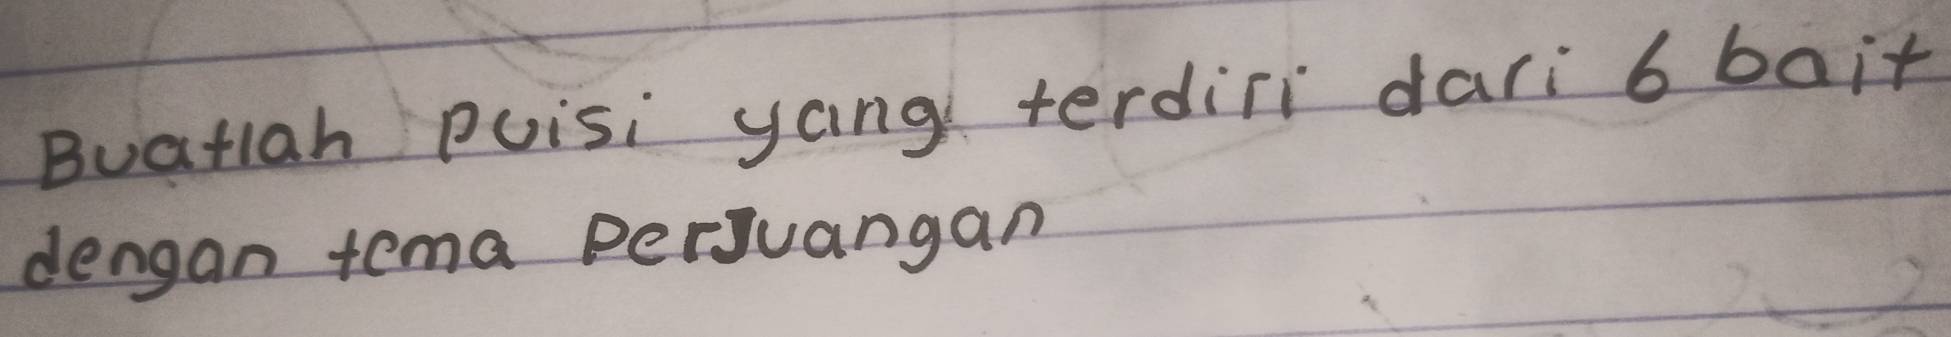 Buatlah puisi yang terdiri dari 6 bait
dengan tema PerJuangan